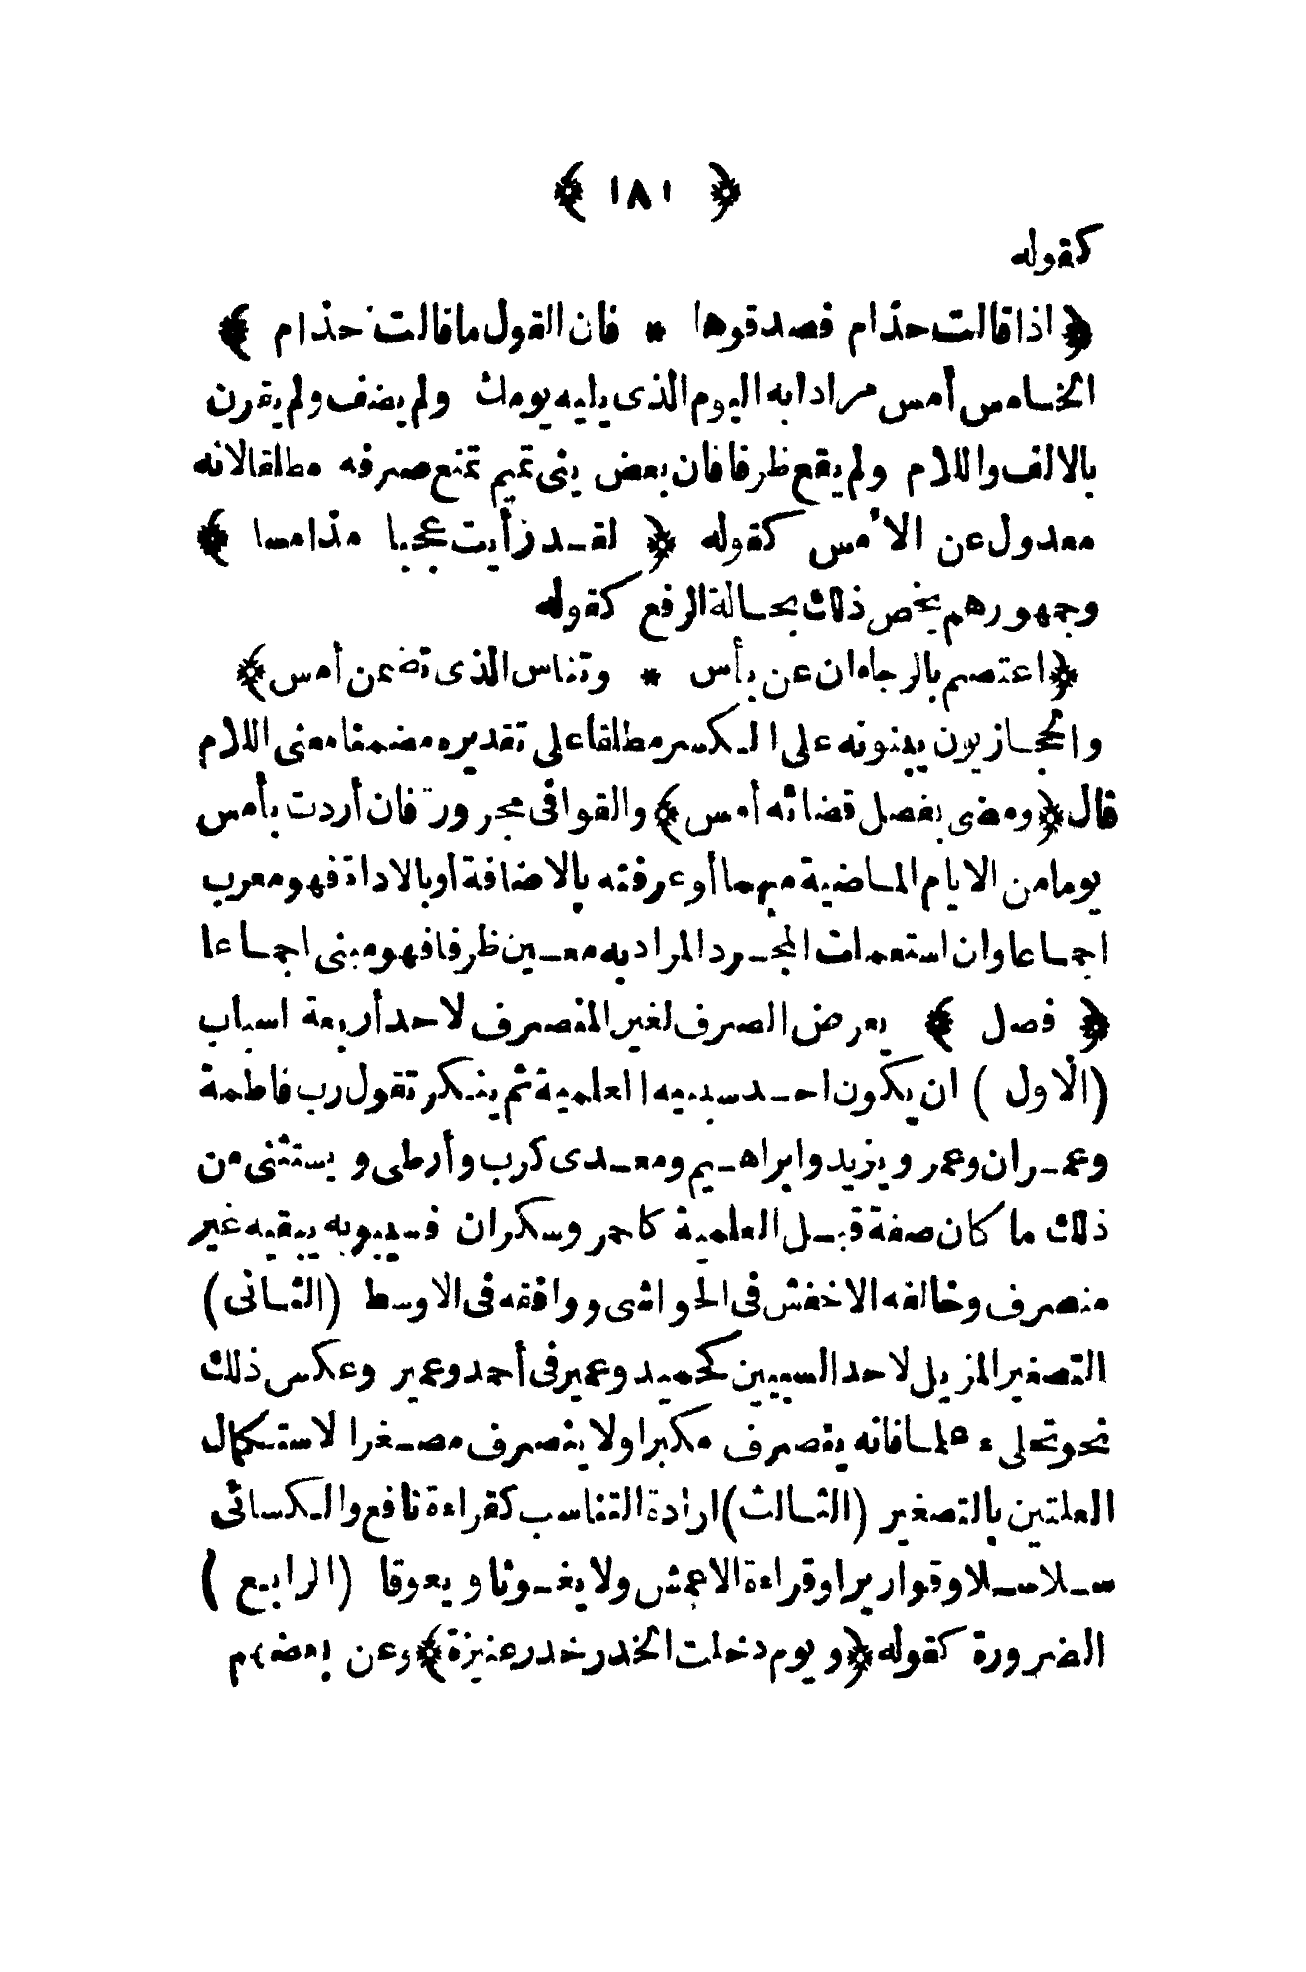 ﴿ ١٨١ ﴾
كقوله
﴿ اذا قالت حذام فصدقوها * فان القول ما قالت حذام ﴾
الخامس أمس مرادا به اليوم الذى يليه يومك ولم يضف ولم يقرن
بالالف واللام ولم يقع ظرفا فان بعض بنى تميم تمنع صرفه مطلقا لانه
معدول عن الأمس كقوله ﴿ لقد رأيت عجبا مذ امسا ﴾
وجمهورهم يخص ذلك بحالة الرفع كقوله
﴿ اعتصم بالرجاء ان عن يأس * وتناس الذى تضمن أمس ﴾
والحجازيون يبنونه على الكسر مطلقا على تقديره مضمنا معنى اللام
قال ﴿ ومضى بفصل قضائه أمس ﴾ والقوافى مجرورة فان أردت بأمس
يوما من الايام الماضية مبهما أو عرفته بالاضافة أو بالاداة فهو معرب
اجماعا وان استعملت المجرد المراد به معين ظرفا فهو مبنى اجماعا
﴿ فصل ﴾ يعرض الصرف لغير المنصرف لاحد أربعة اسباب
(الاول) ان يكون احد سببيه العلمية ثم ينكر تقول رب فاطمة
وعمران وعمر ويزيد وابراهيم ومعدى كرب وأرطى ويستثنى من
ذلك ما كان صفة قبل العلمية كاحمر وسكران فسيبويه يبقيه غير
منصرف وخالفه الاخفش فى الحواشى ووافقه فى الاوسط (الثانى)
التصغير المزيل لاحد السببين كحميد وعمير فى أحمد وعمر وعكس ذلك
نحو تحلىء علما فانه ينصرف مكبرا ولا ينصرف مصغرا لاستكمال
العلتين بالتصغير (الثالث) ارادة التناسب كقراءة نافع والكسائى
سلاسلا وقواريرا وقراءة الاعمش ولا يغوثا ويعوقا (الرابع)
الضرورة كقوله ﴿ ويوم دخلت الخدر خدر عنيزة ﴾ وعن بعضهم